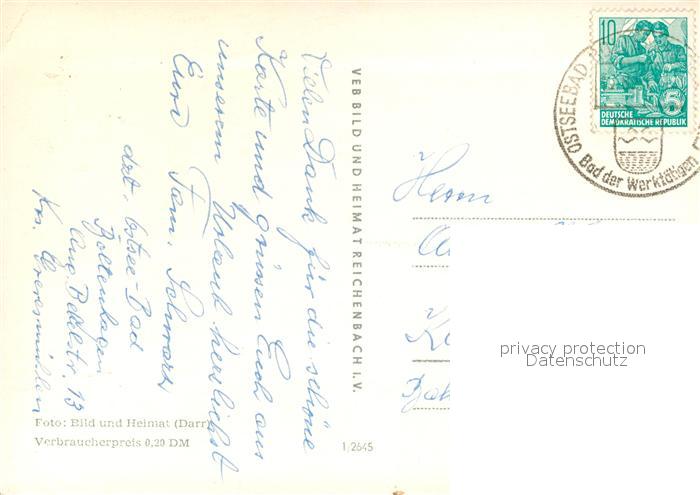 Vielen Dank für die schöne
Karte und grüssen Euch aus
unserem Urlaub herzlichst
Eure Fam. Schwarz
dzt. Ostsee-Bad
Boltenhagen
Aug. Bebelstr. 13
Krs. Grevesmühlen
Foto: Bild und Heimat (Darr)
Verbraucherpreis 0,20 DM
1/2645
VEB BILD UND HEIMAT REICHENBACH I. V.
10
5
DEUTSCHE
DEMOKRATISCHE REPUBLIK
OSTSEEBAD
Bad der Werktätigen
Herrn
privacy protection
Datenschutz